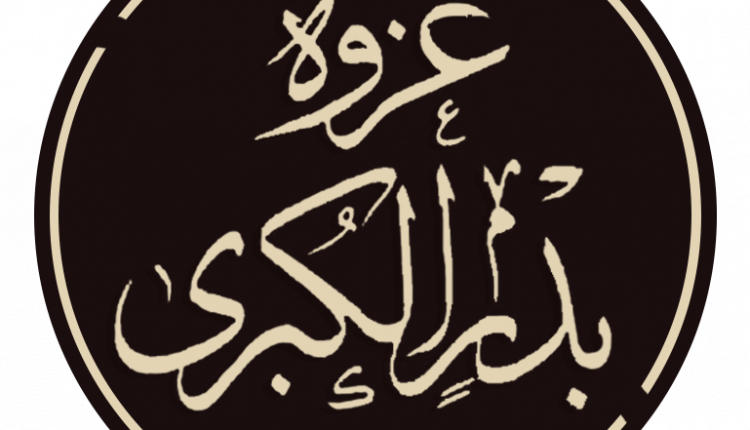 غزوة
بدر الكبرى